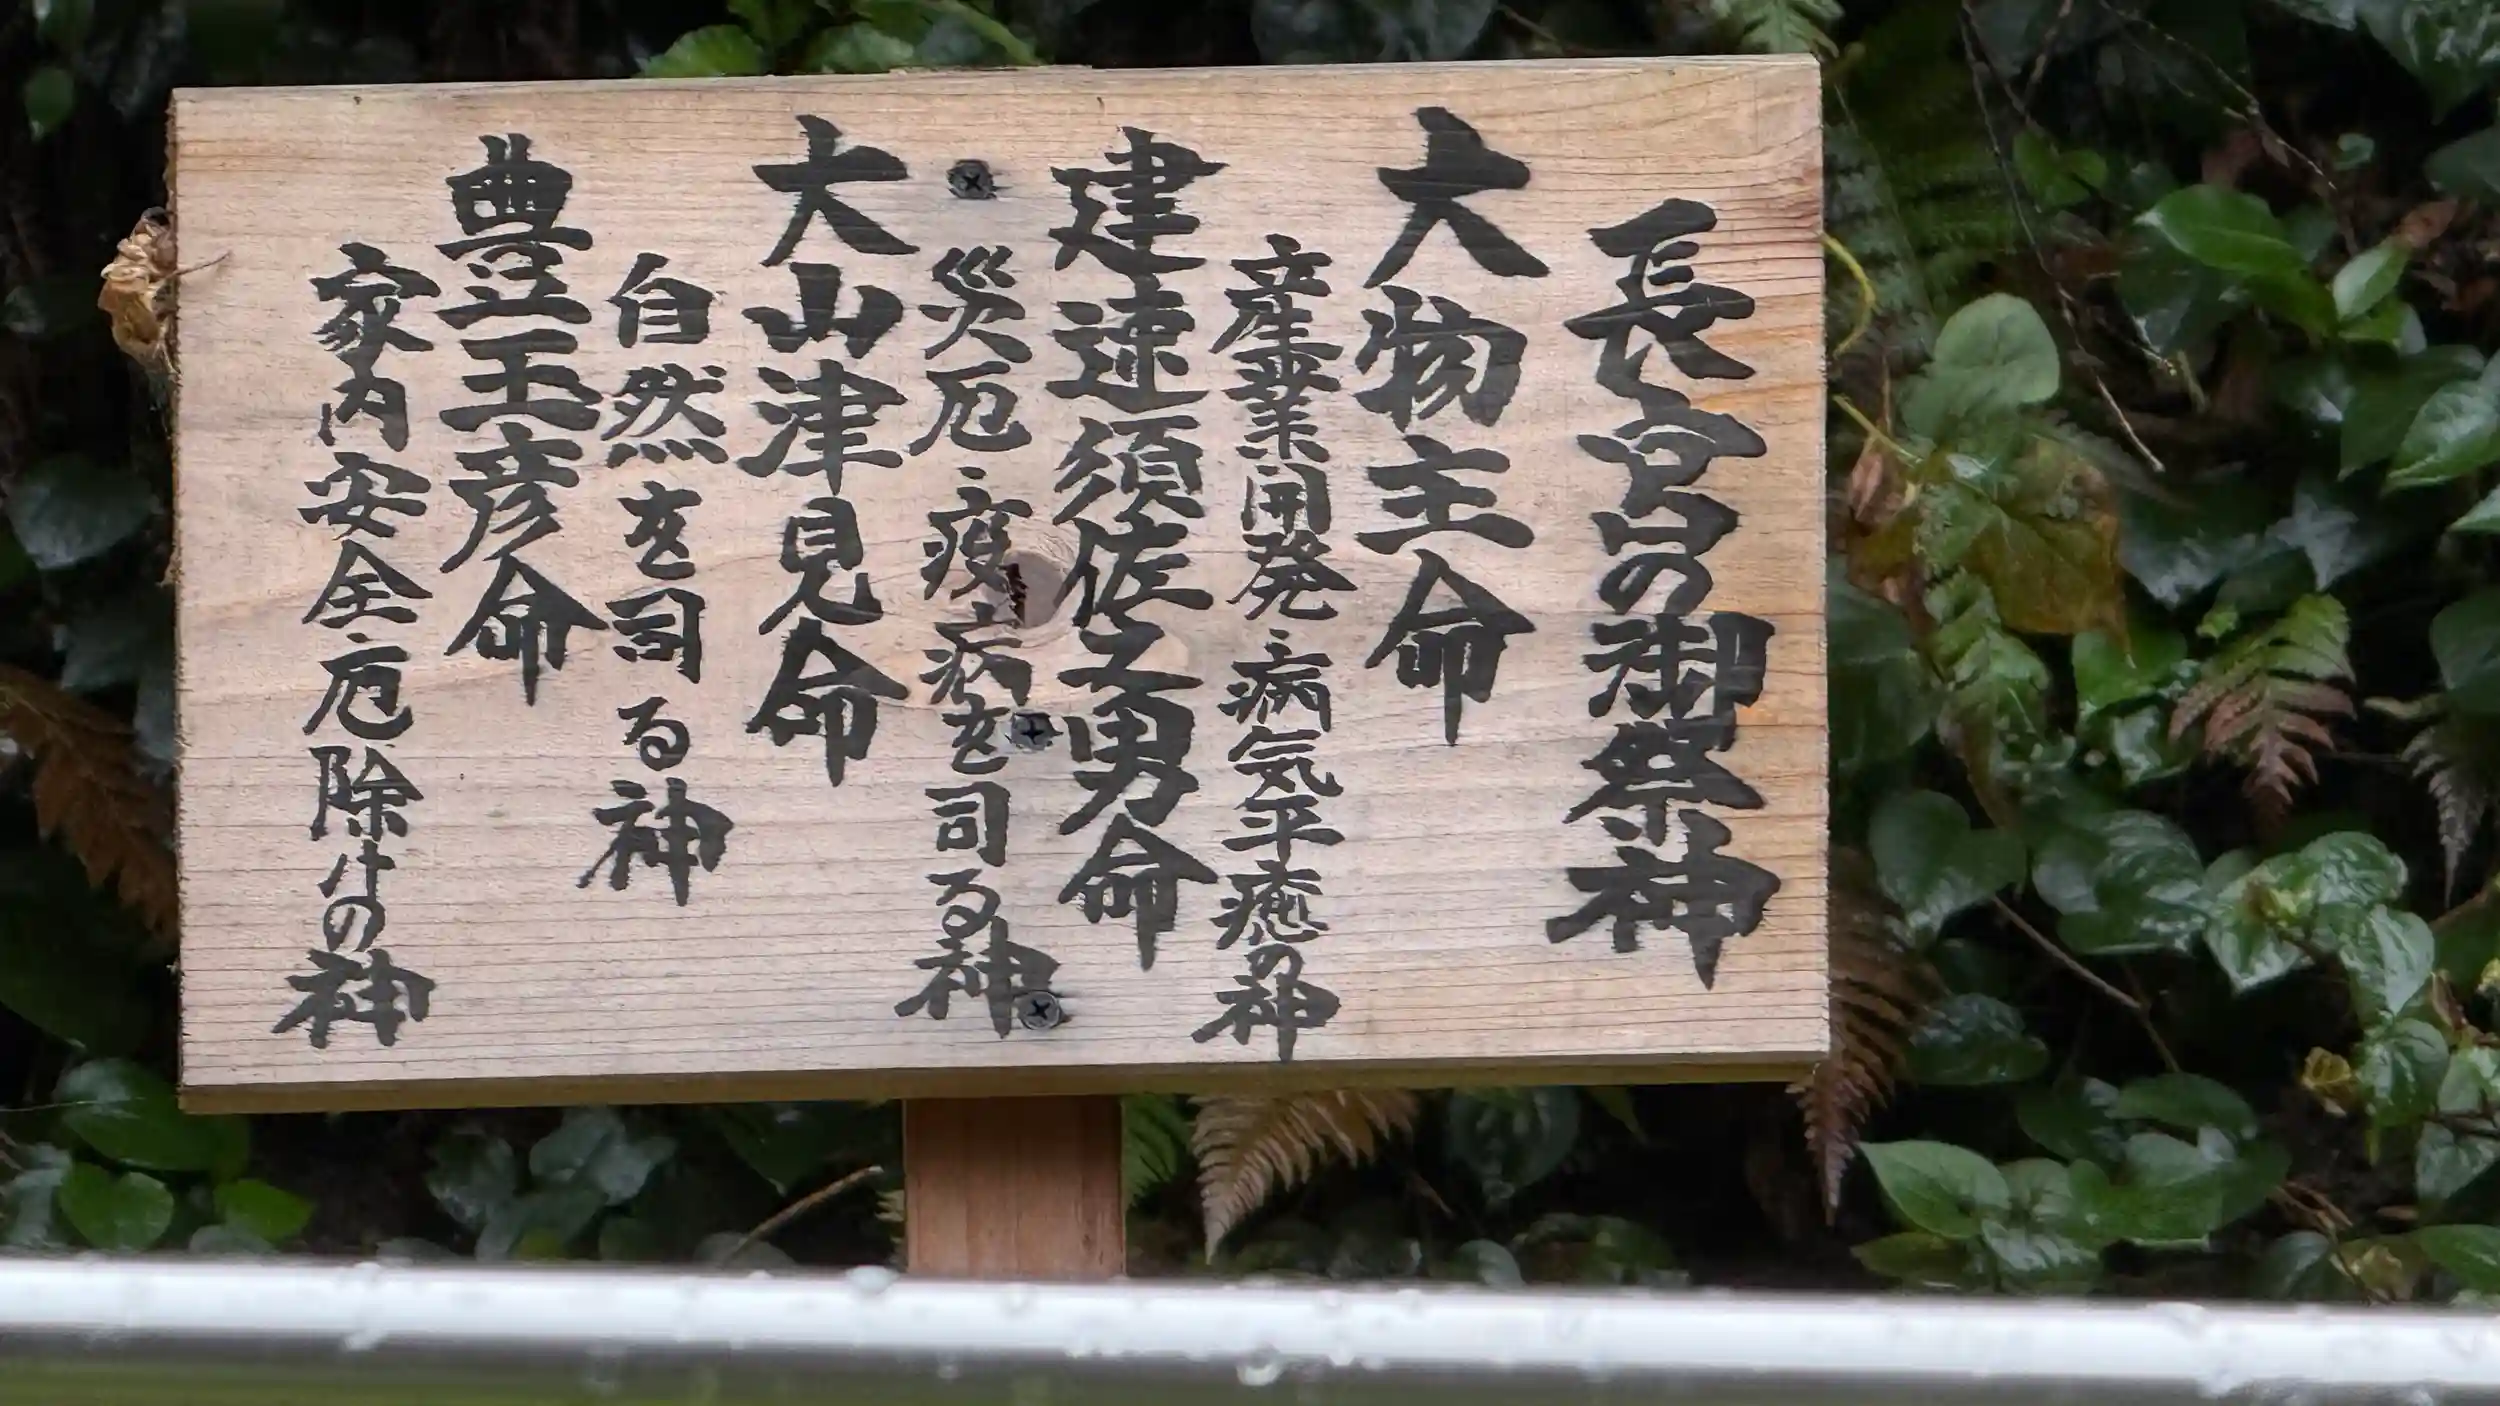 長宮の御祭神
大物主命
産業開発・病気平癒の神
建速須佐之男命
災厄・疫病を司る神
大山津見命
自然を司る神
豊玉彦命
家内安全・厄除けの神